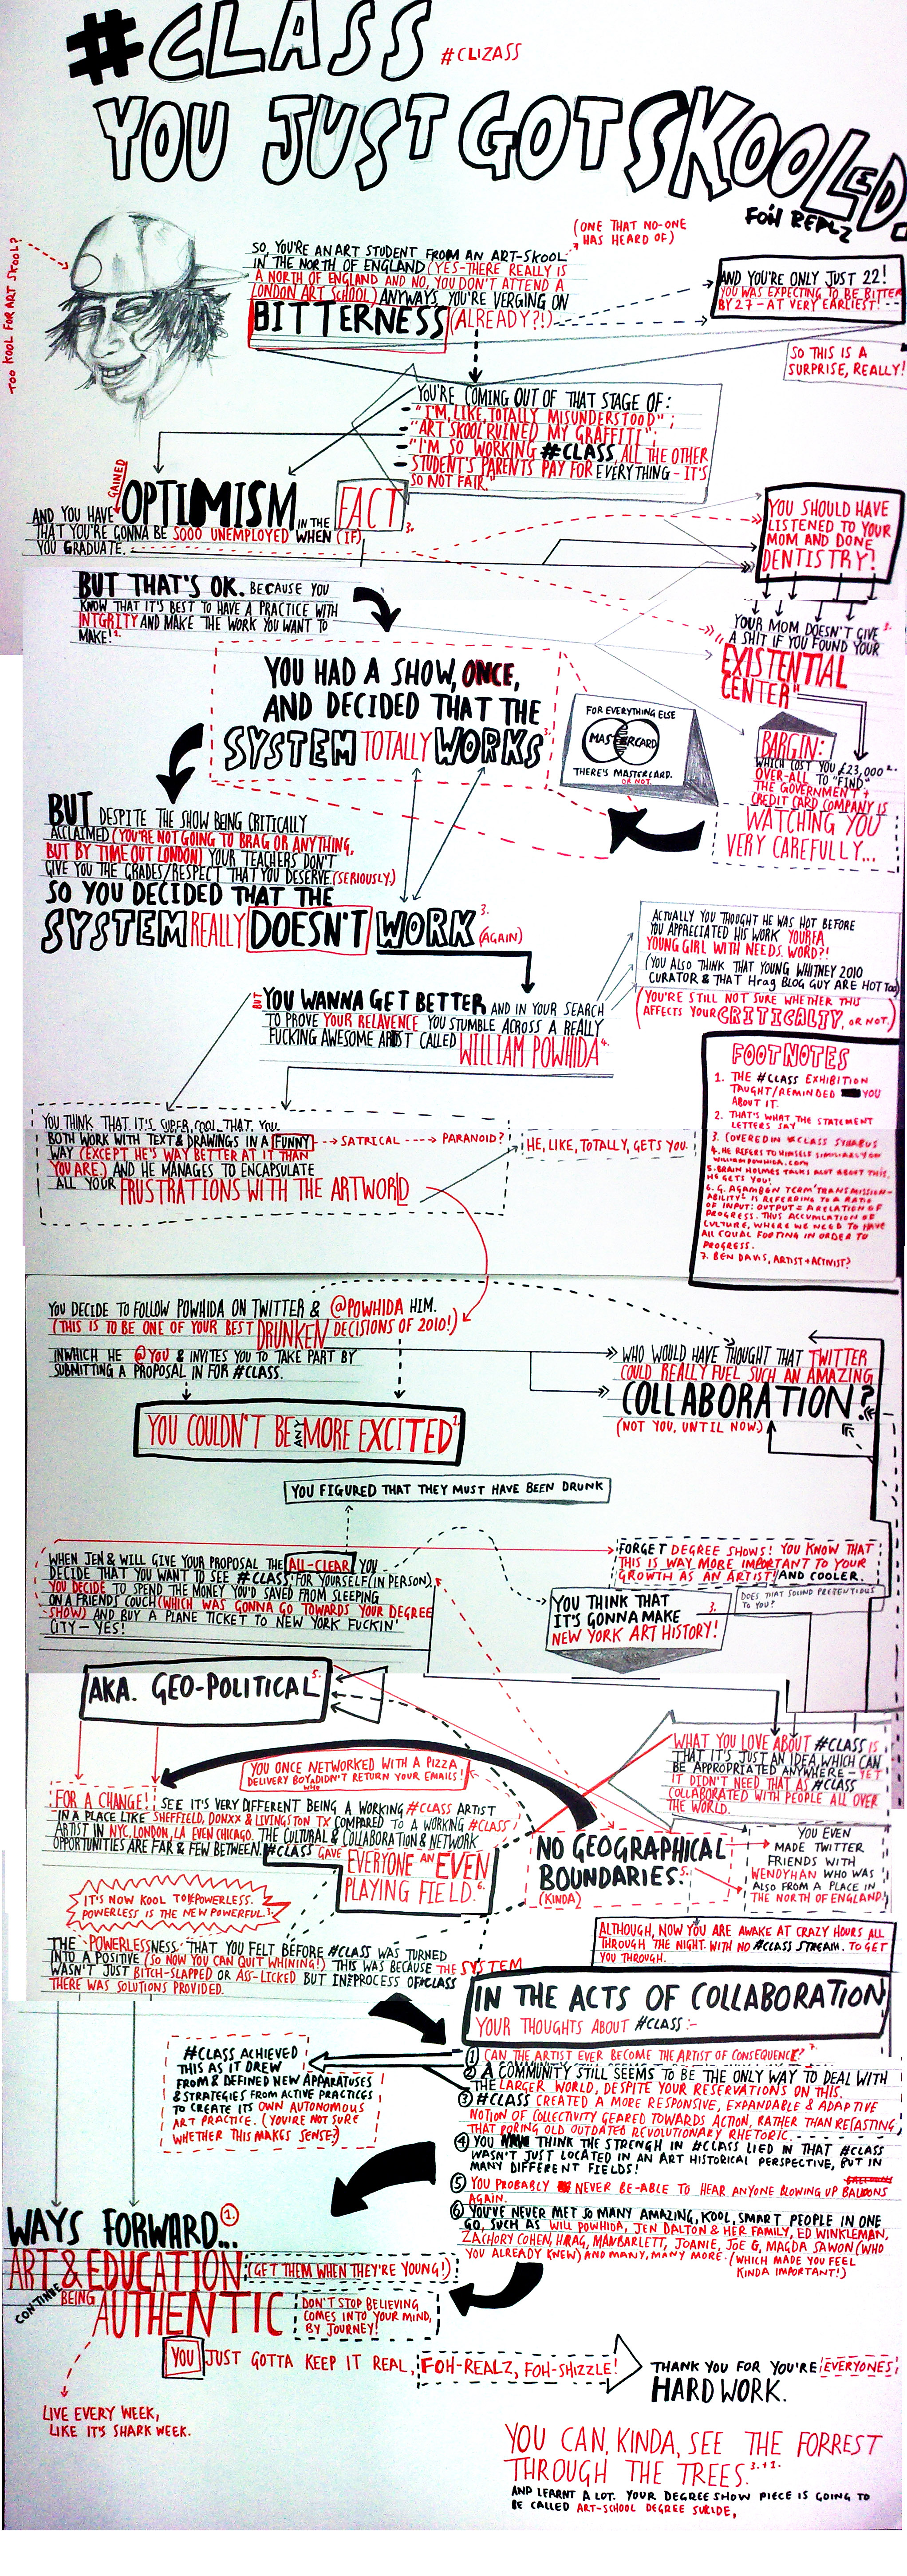 #CLASS
#CLIZASS
YOU JUST GOT SKOOLED.
FOH REALZ
TOO KOOL FOR ART SKOOL?
SO, YOU'RE AN ART STUDENT FROM AN ART-SKOOL
(ONE THAT NO-ONE
HAS HEARD OF)
IN THE NORTH OF ENGLAND (YES-THERE REALLY IS
A NORTH OF ENGLAND AND NO, YOU DON'T ATTEND A
LONDON ART SCHOOL) ANYWAYS, YOU'RE VERGING ON
BITTERNESS (ALREADY?!)
AND YOU'RE ONLY JUST 22!
YOU WAS EXPECTING TO BE BITTER
BY 27 - AT VERY EARLIEST!
SO THIS IS A
SURPRISE, REALLY!
YOU'RE COMING OUT OF THAT STAGE OF:
- "I'M, LIKE, TOTALLY MISUNDERSTOOD";
- "ART SKOOL RUINED MY GRAFFITI";
- "I'M SO WORKING #CLASS, ALL THE OTHER
STUDENT'S PARENTS PAY FOR EVERYTHING - IT'S
SO NOT FAIR."
AND YOU HAVE GAINED OPTIMISM IN THE FACT 3.
THAT YOU'RE GONNA BE SOOO UNEMPLOYED WHEN (IF)
YOU GRADUATE.
YOU SHOULD HAVE
LISTENED TO YOUR
MOM AND DONE
DENTISTRY!
BUT THAT'S OK. BECAUSE YOU
KNOW THAT IT'S BEST TO HAVE A PRACTICE WITH
INTGRITY AND MAKE THE WORK YOU WANT TO
MAKE! 1.
YOUR MOM DOESN'T GIVE 3.
A SHIT IF YOU FOUND YOUR
"EXISTENTIAL
CENTER"
YOU HAD A SHOW, ONCE,
AND DECIDED THAT THE
SYSTEM TOTALLY WORKS 3.
FOR EVERYTHING ELSE
MASTERCARD
THERE'S MASTERCARD.
OR NOT.
BARGIN:
WHICH COST YOU £23,000 2.
OVER-ALL TO "FIND."
THE GOVERNMENT +
CREDIT CARD COMPANY IS
WATCHING YOU
VERY CAREFULLY...
BUT DESPITE THE SHOW BEING CRITICALLY
ACCLAIMED (YOU'RE NOT GOING TO BRAG OR ANYTHING,
BUT BY TIME OUT LONDON) YOUR TEACHERS DON'T
GIVE YOU THE GRADES/RESPECT THAT YOU DESERVE. (SERIOUSLY.)
SO YOU DECIDED THAT THE
SYSTEM REALLY DOESN'T WORK 3. (AGAIN)
ACTUALLY YOU THOUGHT HE WAS HOT BEFORE
YOU APPRECIATED HIS WORK. YOURFA
YOUNG GIRL WITH NEEDS. WORD?!
(YOU ALSO THINK THAT YOUNG WHITNEY 2010
CURATOR & THAT Hrag BLOG GUY ARE HOT TOO)
(YOU'RE STILL NOT SURE WHETHER THIS
AFFECTS YOUR CRITICALTY, OR NOT.)
BUT YOU WANNA GET BETTER AND IN YOUR SEARCH
TO PROVE YOUR RELAVENCE YOU STUMBLE ACROSS A REALLY
FUCKING AWESOME ARTIST CALLED WILLIAM POWHIDA 4.
YOU THINK THAT IT'S SUPER, COOL THAT YOU
BOTH WORK WITH TEXT & DRAWINGS IN A FUNNY SATRICAL PARANOID?
WAY (EXCEPT HE'S WAY BETTER AT IT THAN
YOU ARE) AND HE MANAGES TO ENCAPSULATE
ALL YOUR FRUSTRATIONS WITH THE ARTWORLD
HE, LIKE, TOTALLY, GETS YOU.
FOOTNOTES
1. THE #CLASS EXHIBITION
TAUGHT/REMINDED YOU
ABOUT IT.
2. THAT'S WHAT THE STATEMENT
LETTERS SAY
3. COVERED IN #CLASS SYLABUS
4. HE REFERS TO HIMSELF SIMILARLY ON
WILLIAMPOWHIDA.COM
5. BRAIN HOLMES TALKS ALOT ABOUT THIS,
HE GETS YOU!
6. G. AGAMBEN TERM 'TRANSMISSION-
ABILITY' IS REFERRING TO A RATIO
OF INPUT: OUTPUT = A RELATION OF
PROGRESS. THUS ACCUMLATION OF
CULTURE, WHERE WE NEED TO HAVE
ALL EQUAL FOOTING IN ORDER TO
PROGRESS.
7. BEN DAVIS, ARTIST + ACTIVIST?
YOU DECIDE TO FOLLOW POWHIDA ON TWITTER & @POWHIDA HIM.
(THIS IS TO BE ONE OF YOUR BEST DRUNKEN DECISIONS OF 2010!)
INWHICH HE @YOU & INVITES YOU TO TAKE PART BY
SUBMITTING A PROPOSAL IN FOR #CLASS.
WHO WOULD HAVE THOUGHT THAT TWITTER
COULD REALLY FUEL SUCH AN AMAZING
COLLABORATION?
(NOT YOU, UNTIL NOW.)
YOU COULDN'T BE ANY MORE EXCITED 1.
YOU FIGURED THAT THEY MUST HAVE BEEN DRUNK
WHEN JEN & WILL GIVE YOUR PROPOSAL THE ALL-CLEAR YOU
DECIDE THAT YOU WANT TO SEE #CLASS FOR YOURSELF (IN PERSON).
YOU DECIDE TO SPEND THE MONEY YOU'D SAVED FROM SLEEPING
ON A FRIENDS COUCH (WHICH WAS GONNA GO TOWARDS YOUR DEGREE
SHOW) AND BUY A PLANE TICKET TO NEW YORK FUCKIN'
CITY - YES!
FORGET DEGREE SHOWS! YOU KNOW THAT
THIS IS WAY MORE IMPORTANT TO YOUR
GROWTH AS AN ARTIST! AND COOLER.
DOES THAT SOUND PRETENTIOUS
TO YOU?
YOU THINK THAT
IT'S GONNA MAKE 3.
NEW YORK ART HISTORY!
AKA. GEO-POLITICAL 5.
WHAT YOU LOVE ABOUT #CLASS IS
THAT IT'S JUST AN IDEA, WHICH CAN
BE APPROPRIATED ANYWHERE - YET
IT DIDN'T NEED THAT AS #CLASS
COLLABORATED WITH PEOPLE ALL OVER
THE WORLD.
YOU ONCE NETWORKED WITH A PIZZA
DELIVERY BOY WHO DIDN'T RETURN YOUR EMAILS!
FOR A CHANGE! SEE IT'S VERY DIFFERENT BEING A WORKING #CLASS ARTIST
IN A PLACE LIKE SHEFFIELD, DONXX & LIVINGSTON TX COMPARED TO A WORKING #CLASS
ARTIST IN NYC, LONDON, LA EVEN CHICAGO. THE CULTURAL & COLLABORATION & NETWORK
OPPORTUNITIES ARE FAR & FEW BETWEEN. #CLASS GAVE
EVERYONE AN EVEN
PLAYING FIELD. 6.
NO GEOGRAPHICAL
BOUNDARIES. 5.
(KINDA)
YOU EVEN
MADE TWITTER
FRIENDS WITH
WENDYHAN WHO WAS
ALSO FROM A PLACE IN
THE NORTH OF ENGLAND!
IT'S NOW KOOL TO BE POWERLESS.
POWERLESS IS THE NEW POWERFUL. 3.
ALTHOUGH, NOW YOU ARE AWAKE AT CRAZY HOURS ALL
THROUGH THE NIGHT. WITH NO #CLASS STREAM. TO GET
YOU THROUGH.
THE 'POWERLESSNESS' THAT YOU FELT BEFORE #CLASS WAS TURNED
INTO A POSITIVE (SO NOW YOU CAN QUIT WHINING!) THIS WAS BECAUSE THE SYSTEM
WASN'T JUST BITCH-SLAPPED OR ASS-LICKED BUT IN PROCESS OF #CLASS
THERE WAS SOLUTIONS PROVIDED.
IN THE ACTS OF COLLABORATION
YOUR THOUGHTS ABOUT #CLASS:-
1 CAN THE ARTIST EVER BECOME THE ARTIST OF CONSEQUENCE? 7.
2 A COMMUNITY STILL SEEMS TO BE THE ONLY WAY TO DEAL WITH
THE LARGER WORLD, DESPITE YOUR RESERVATIONS ON THIS.
3 #CLASS CREATED A MORE RESPONSIVE, EXPANDABLE & ADAPTIVE
NOTION OF COLLECTIVITY GEARED TOWARDS ACTION, RATHER THAN RECASTING,
THAT BORING OLD OUTDATED REVOLUTIONARY RHETORIC.
4 YOU THINK THE STRENGH IN #CLASS LIED IN THAT #CLASS
WASN'T JUST LOCATED IN AN ART HISTORICAL PERSPECTIVE, BUT IN
MANY DIFFERENT FIELDS!
5 YOU PROBABLY NEVER BE-ABLE TO HEAR ANYONE BLOWING UP BALOONS
AGAIN.
6 YOU'VE NEVER MET SO MANY AMAZING, KOOL, SMART PEOPLE IN ONE
GO, SUCH AS WILL POWHIDA, JEN DALTON & HER FAMILY, ED WINKLEMAN,
ZACHORY COHEN, HRAG, MAN BARLETT, JOANIE, JOE G, MAGDA SAWON (WHO
YOU ALREADY KNEW) AND MANY, MANY MORE. (WHICH MADE YOU FEEL
KINDA IMPORTANT!)
#CLASS ACHIEVED
THIS AS IT DREW
FROM & DEFINED NEW APPARATUSES
& STRATEGIES FROM ACTIVE PRACTICES
TO CREATE ITS OWN AUTONOMOUS
ART PRACTICE. (YOU'RE NOT SURE
WHETHER THIS MAKES SENSE?)
WAYS FORWARD... 1.
ART & EDUCATION (GET THEM WHEN THEY'RE YOUNG!)
CONTINUE BEING AUTHENTIC
DON'T STOP BELIEVING
COMES INTO YOUR MIND,
BY JOURNEY!
YOU JUST GOTTA KEEP IT REAL, FOH-REALZ, FOH-SHIZZLE!
THANK YOU FOR YOU'RE EVERYONES
HARD WORK.
LIVE EVERY WEEK,
LIKE IT'S SHARK WEEK.
YOU CAN, KINDA, SEE THE FORREST
THROUGH THE TREES. 3.+1.
AND LEARNT A LOT. YOUR DEGREE SHOW PIECE IS GOING TO
BE CALLED ART-SCHOOL DEGREE SUICIDE,